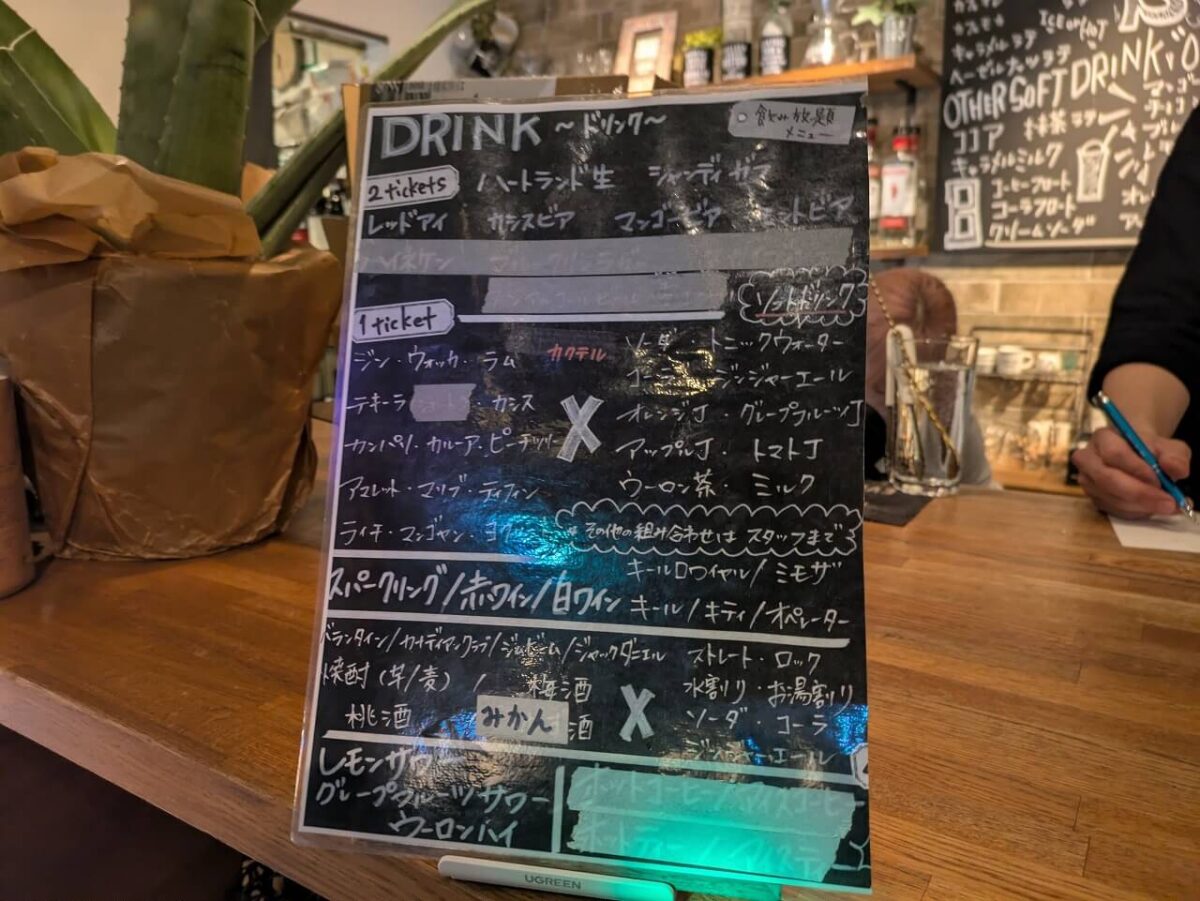 DRINK ～ドリンク～
食べ飲み放題
メニュー
2 tickets
ハートランド生 シャンディガフ
レッドアイ カシスビア マンゴービア ミントビア
ハイネケン
ソフトドリンク
1 ticket
ジン・ウォッカ・ラム
カクテル
ソーダ・トニックウォーター
コーラ・ジンジャーエール
テキーラ ・カシス
X
オレンジJ・グレープフルーツJ
カンパリ・カルーア・ピーチツリー
アップルJ・トマトJ
アマレット・マリブ・ティフィン
ウーロン茶・ミルク
ライチ・マンゴヤン・ヨ
※その他の組み合わせは スタッフまで
スパークリング/赤ワイン/白ワイン
キールロワイヤル/ミモザ
キール/キティ/オペレーター
バランタイン/カナディアンクラブ/ジムビーム/ジャックダニエル
焼酎（芋/麦） / 梅酒
桃酒 みかん 酒
X
ストレート・ロック
水割り・お湯割り
ソーダ・コーラ
ジンジャーエール
レモンサワー
グレープフルーツサワー
ウーロンハイ
ホットコーヒー/アイスコーヒー
ホットティー/アイスティー
UGREEN
カスモカ
ICE or HOT
キャラメルラテ
ヘーゼルナッツラテ
OTHER SOFT DRINK
ココア 抹茶ラテ
キャラメルミルク
コーヒーフロート
コーラフロート
クリームソーダ